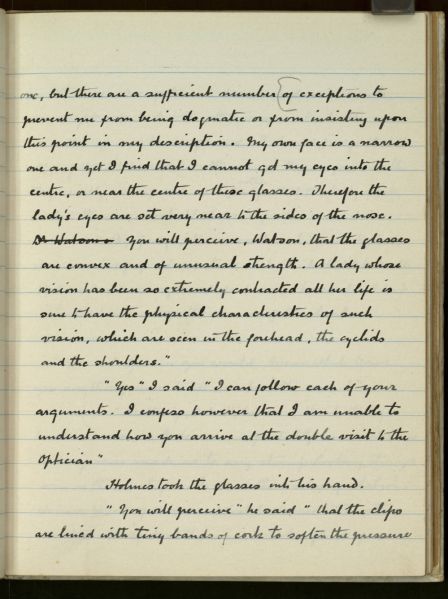 one, but there are a sufficient number of exceptions to
prevent me from being dogmatic or from insisting upon
this point in my description. My own face is a narrow
one and yet I find that I cannot get my eyes into the
centre, or near the centre of these glasses. Therefore the
lady's eyes are set very near to the sides of the nose.
Dr Watson You will perceive, Watson, that the glasses
are convex and of unusual strength. A lady whose
vision has been so extremely contracted all her life is
sure to have the physical characteristics of such
vision, which are seen in the forehead, the eyelids
and the shoulders."
"Yes" I said "I can follow each of your
arguments. I confess however that I am unable to
understand how you arrive at the double visit to the
Optician"
Holmes took the glasses into his hand.
"You will perceive" he said "that the clips
are lined with tiny bands of cork to soften the pressure